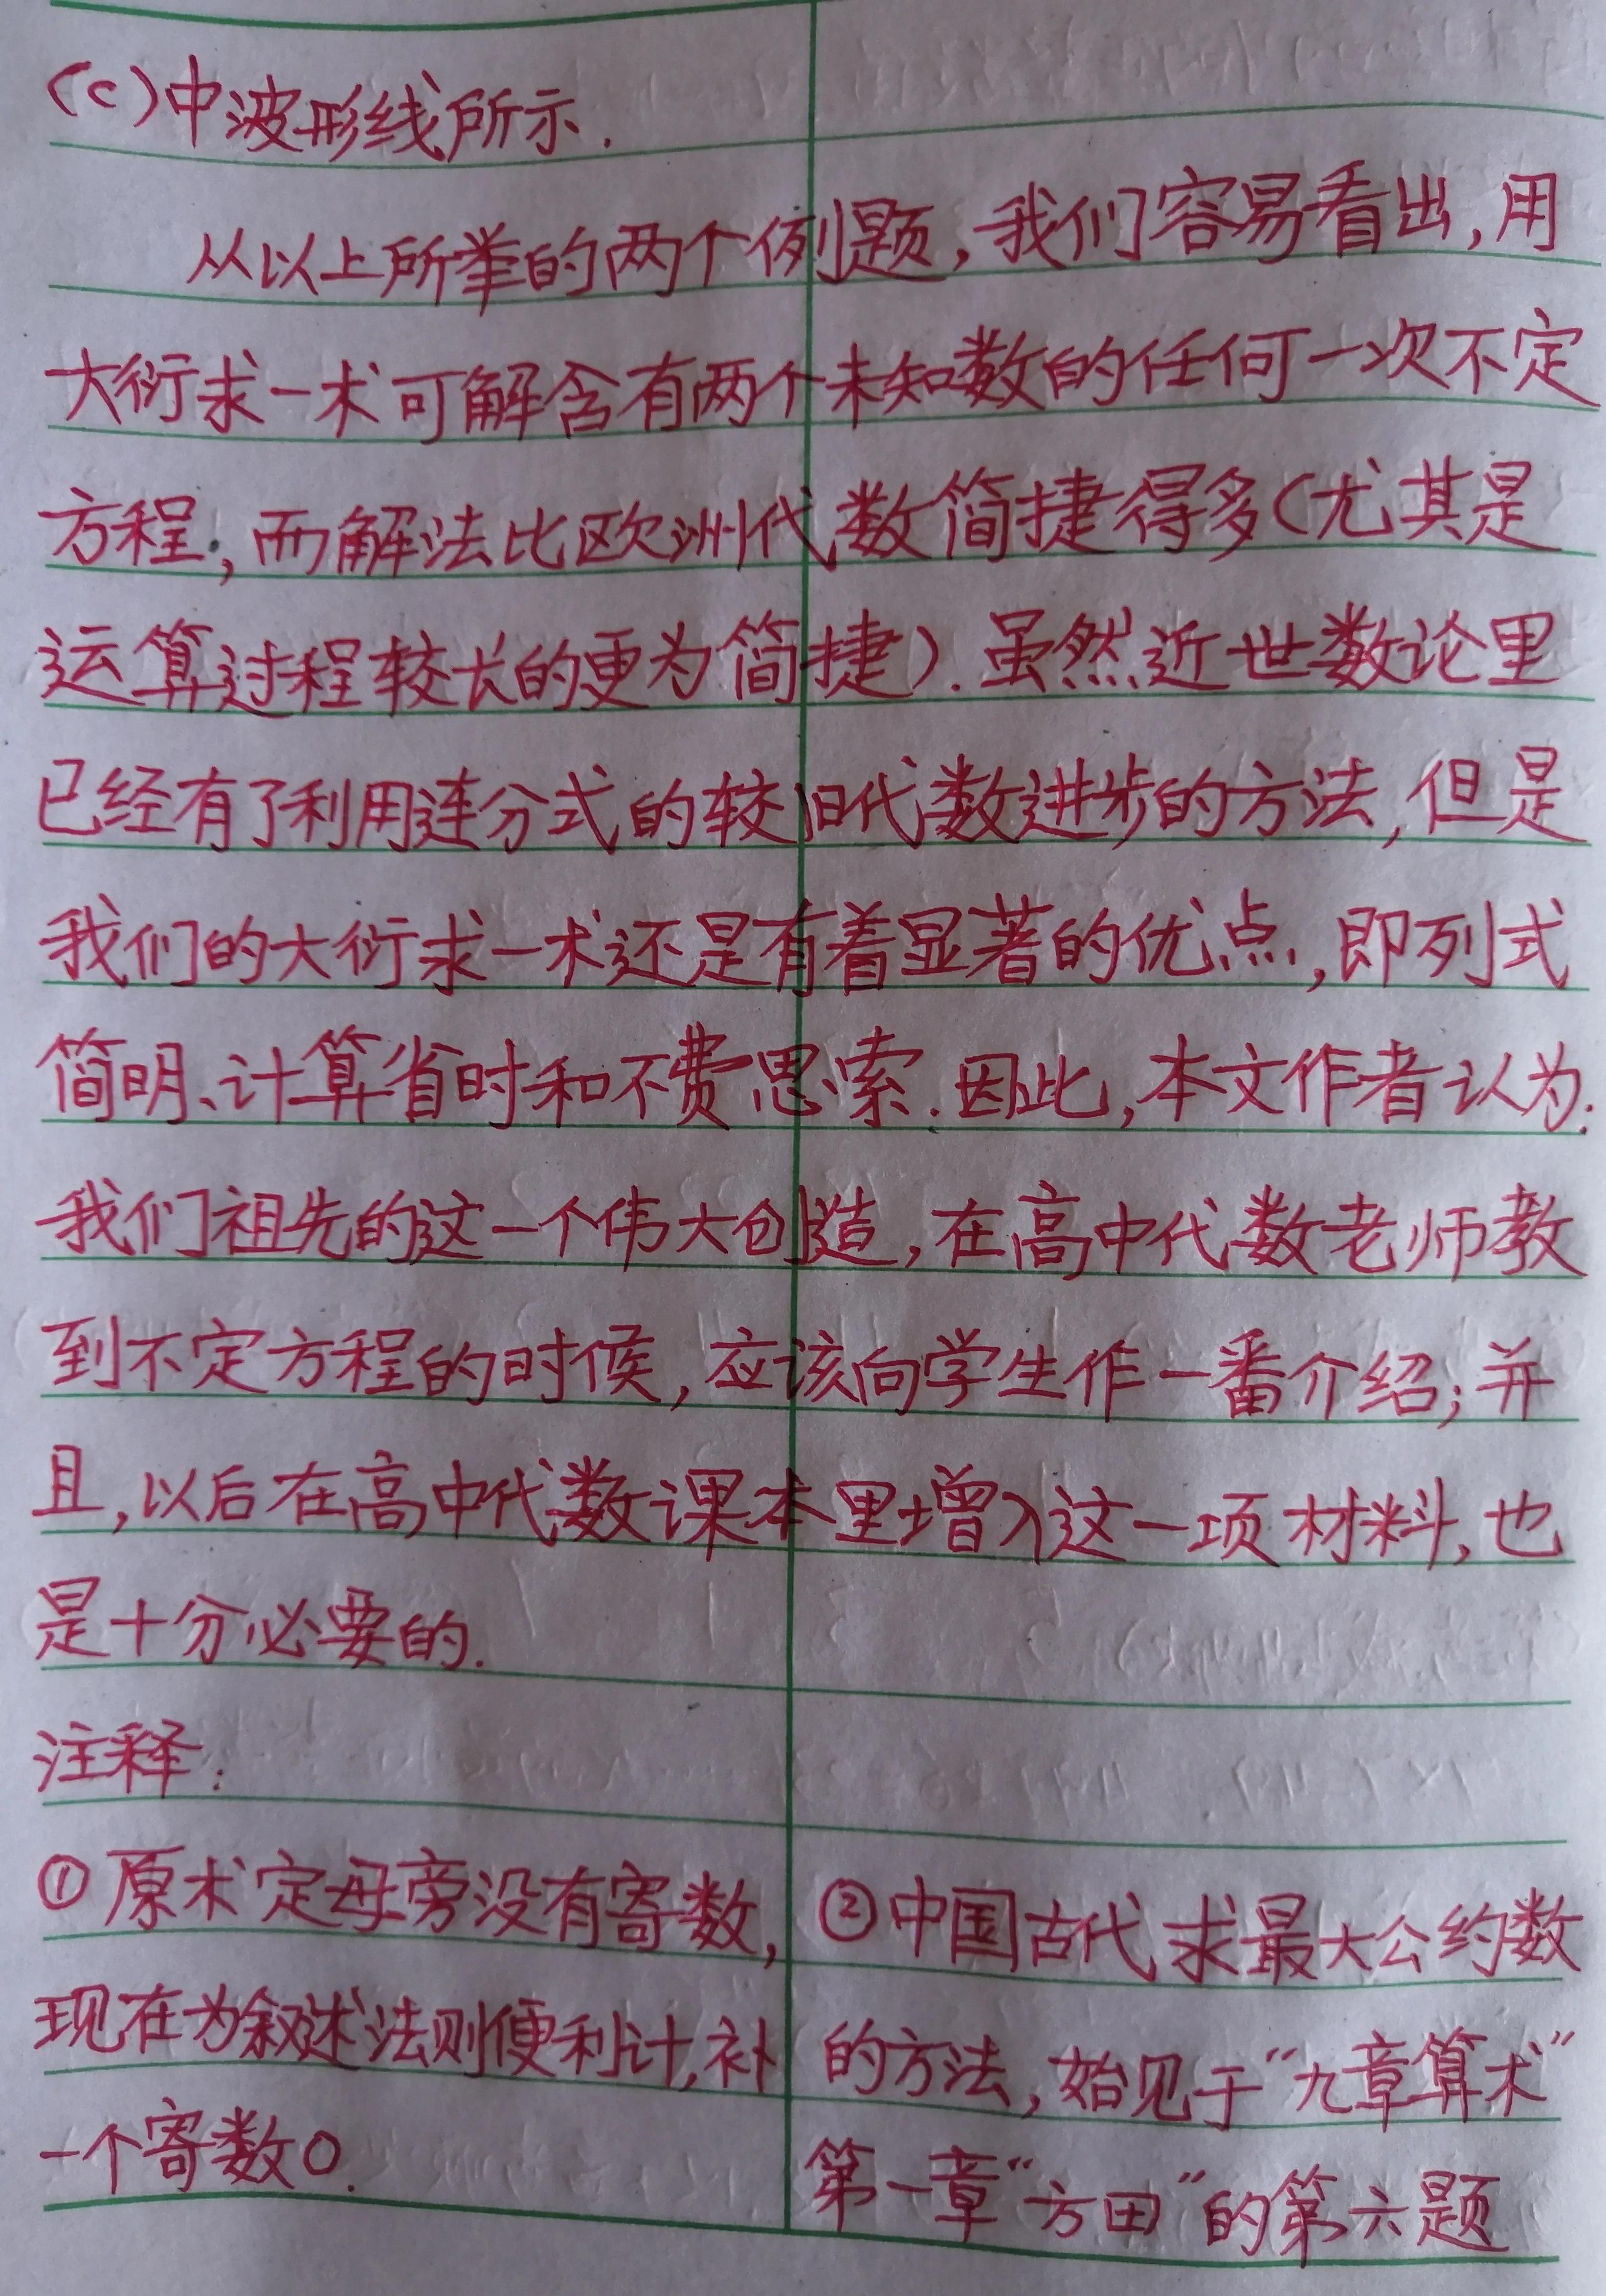 (c)中波形线所示.
从以上所举的两个例题,我们容易看出,用
大衍求一术可解含有两个未知数的任何一次不定
方程;而解法比欧洲代数简捷得多(尤其是
运算过程较长的更为简捷).虽然近世数论里
已经有了利用连分式的较旧代数进步的方法,但是
我们的大衍求一术还是有着显著的优点,即列式
简明、计算省时和不费思索.因此,本文作者认为:
我们祖先的这一个伟大创造,在高中代数老师教
到不定方程的时候,应该向学生作一番介绍;并
且,以后在高中代数课本里增入这一项材料,也
是十分必要的.
注释:
①原术定母旁没有寄数,
现在为叙述法则便利计,补
一个寄数0.
②中国古代求最大公约数
的方法,始见于“九章算术”
第一章“方田”的第六题